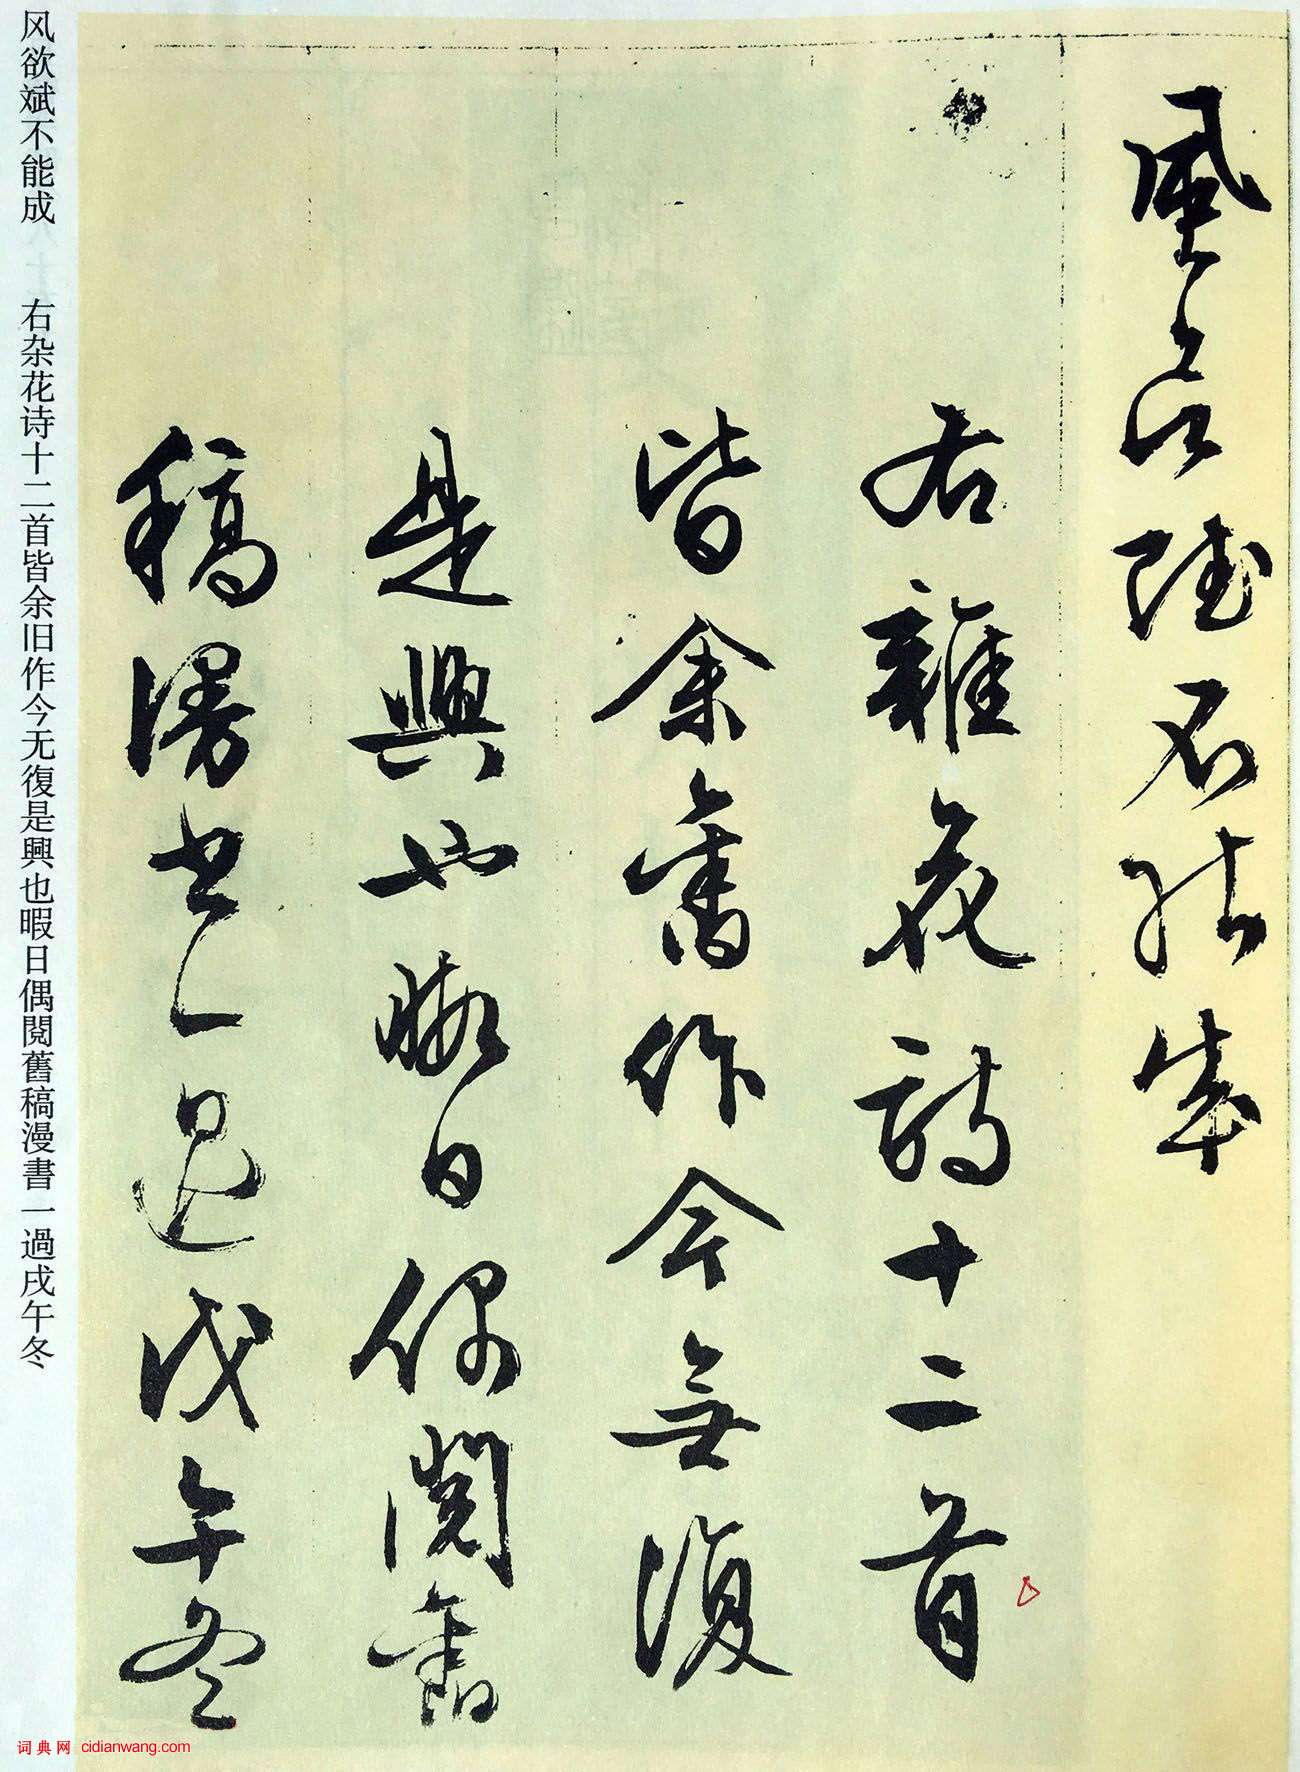 風不能成
右雜花詩十二首
皆余舊作今無復
是興也暇日偶閱舊
稿漫書一過戊午冬
风欲斌不能成 右杂花诗十二首皆余旧作今无復是興也暇日偶閱舊稿漫書一過戌午冬
词典网 cidianwang.com